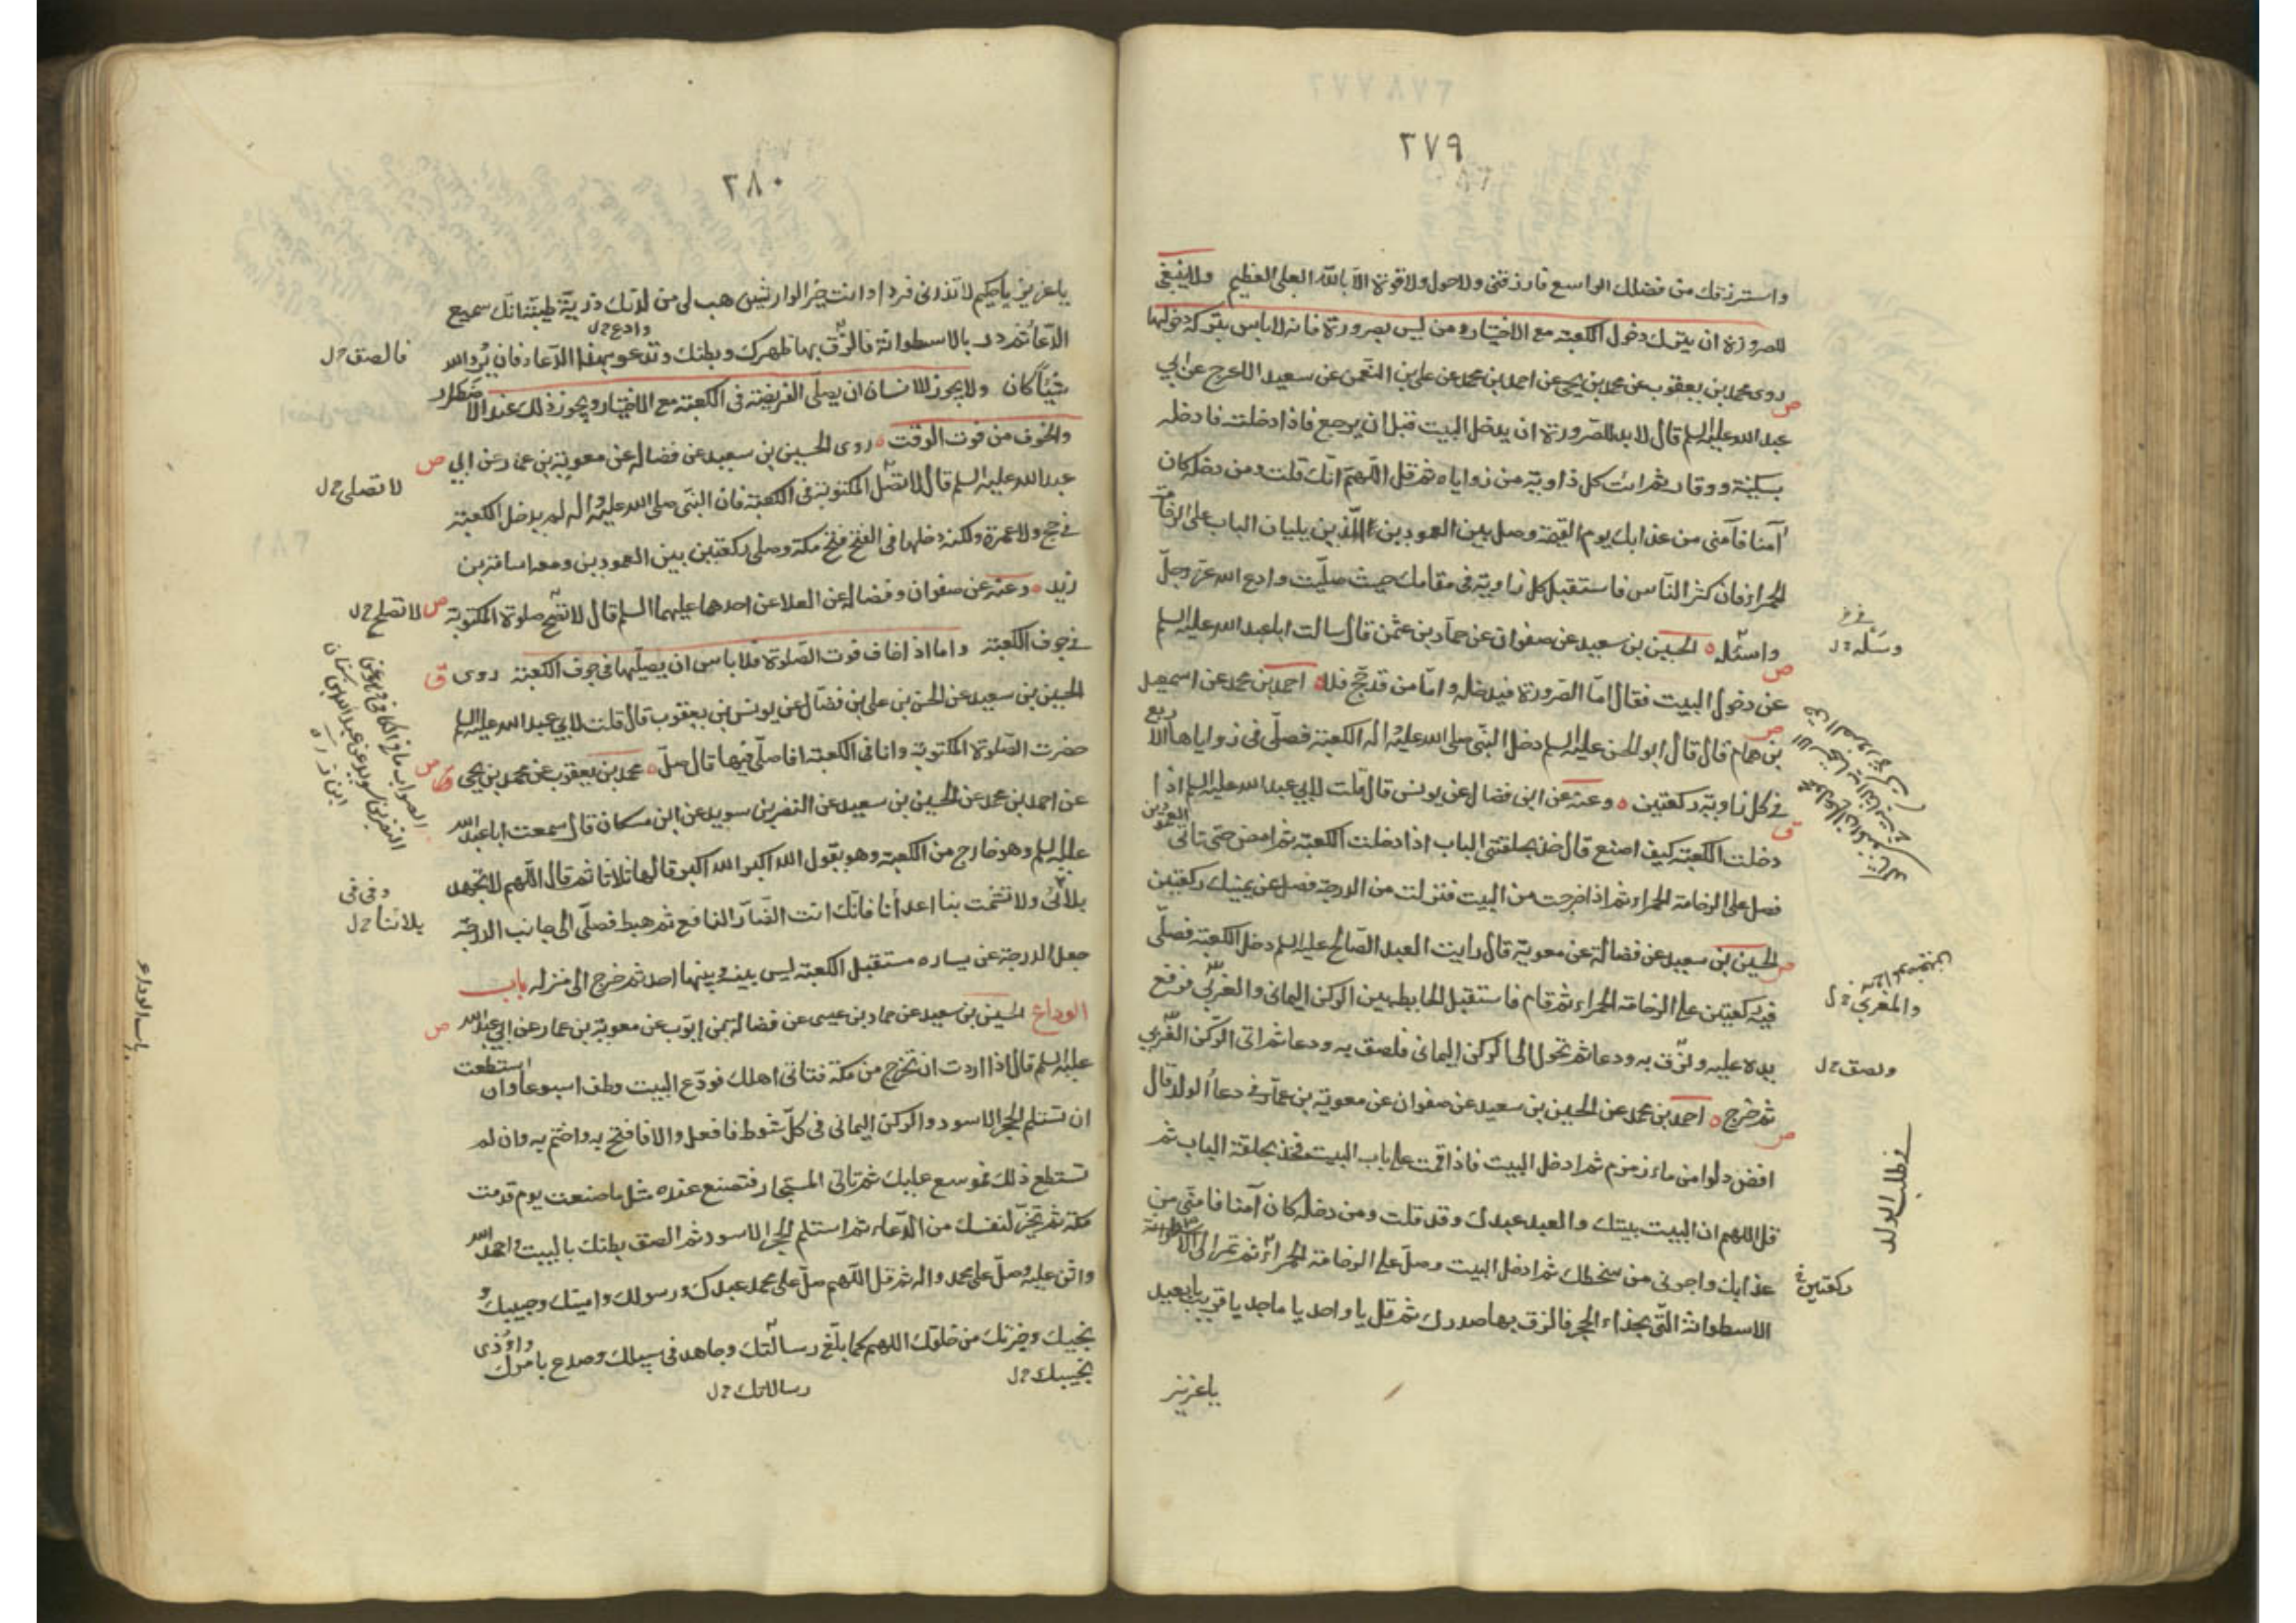 ٢٧٩
واسترزقك من فضلك الواسع فارزقني ولاحول ولاقوة الا بالله العلي العظيم ولاينبغي
للصرورة ان يترك دخول الكعبة مع الاختيار ومن ليس بصرورة فانه لاباس بتركه دخولها
روى محمد بن يعقوب عن محمد بن يحيى عن احمد بن محمد عن علي بن النعمن عن سعيد الاعرج عن ابي
ص
عبد الله عليه السلم قال لا بد للصرورة ان يدخل البيت قبل ان يرجع فاذا دخلته فادخله
بسكينة ووقار ثم ائت كل زاوية من زواياه ثم قل اللهم انك قلت ومن دخله كان
آمنا فآمني من عذابك يوم القيمة وصل بين العمودين اللذين يليان الباب على الرخامة
الحمراء فان كثر الناس فاستقبل كل زاوية في مقامك حيث صليت وادع الله عز وجل
واسئله ه الحسين بن سعيد عن صفوان عن حماد بن عثمن قال سالت ابا عبد الله عليه السلم
وسله خ ل
ص
عن دخول البيت فقال اما الصرورة فيدخله واما من قد حج فلا ه احمد بن محمد عن اسمعيل
ص
بن همام قال قال ابو الحسن عليه السلم دخل النبي صلى الله عليه واله الكعبة فصلى في زواياها الاربع
في كل زاوية ركعتين ه وعنه عن ابن فضال عن يونس قال قلت لابي عبد الله عليه السلم اذا
ق
دخلت الكعبة كيف اصنع قال خذ بحلقتي الباب اذا دخلت الكعبة ثم امض حتى تاتي العمودين
فصل على الرخامة الحمراء ثم اذا خرجت من البيت فنزلت من الدرجة فصل عن يمينك ركعتين
ص
الحسين بن سعيد عن فضالة عن معوية قال رايت العبد الصالح عليه السلم دخل الكعبة فصلى
فيه ركعتين على الرخامة الحمراء ثم قام فاستقبل الحايط بين الركن اليماني والغربي فرفع
والمغربي خ ل
يده عليه ولزق به ودعا ثم تحول الى الركن اليماني فلصق به ودعا ثم اتى الركن الغربي
ولصق خ ل
ثم خرج ه احمد بن محمد عن الحسين بن سعيد عن صفوان عن معوية بن عمار في دعاء الولد قال
ص
افض دلوا من ماء زمزم ثم ادخل البيت فاذا قمت على باب البيت فخذ بحلقة الباب ثم
في طلب الولد
قل اللهم ان البيت بيتك والعبد عبدك وقد قلت ومن دخله كان آمنا فامني من
عذابك واجرني من سخطك ثم ادخل البيت وصل على الرخامة الحمراء ثم تمر الى الاسطوانة
ركعتين
الاسطوانة التي بحذاء الحجر فالزق بها صدرك ثم قل يا واحد يا ماجد يا قريب يا بعيد
يا عزيز
٢٨٠
يا عزيز يا حكيم لا تذرني فردا وانت خير الوارثين هب لي من لدنك ذرية طيبة انك سميع
الدعاء ثم در بالاسطوانة فالزق بها ظهرك وبطنك وتدعو بهذا الدعاء فان يرد الله
وادع خ ل
فالصق خ ل
شيئا كان ولا يجوز للانسان ان يصلي الفريضة في الكعبة مع الاختيار ويجوز ذلك عند الاضطرار
والخوف من فوت الوقت ه روى الحسين بن سعيد عن فضالة عن معوية بن عمار عن ابي
ص
عبد الله عليه السلم قال لا تصل المكتوبة في الكعبة فان النبي صلى الله عليه واله لم يدخل الكعبة
لا تصلي خ ل
في حج ولا عمرة ولكنه دخلها في الفتح فتح مكة وصلى ركعتين بين العمودين ومعه اسامة بن
زيد ه وعنه عن صفوان وفضالة عن العلا عن احدهما عليهما السلم قال لا تصح صلوة المكتوبة
ص
لا تصلح خ ل
في جوف الكعبة واما اذا خاف فوت الصلوة فلا باس ان يصليها في جوف الكعبة روى
ق
الحسين بن سعيد عن الحسن بن علي بن فضال عن يونس بن يعقوب قال قلت لابي عبد الله عليه السلم
حضرت الصلوة المكتوبة وانا في الكعبة افاصلي فيها قال صل ه محمد بن يعقوب عن محمد بن يحيى
ص
عن احمد بن محمد عن الحسين بن سعيد عن النضر بن سويد عن ابن مسكان قال سمعت ابا عبد الله
الصواب ما في الكافي وهو عن
النضر بن سويد عن عبد الله بن سنان
عليه السلم وهو خارج من الكعبة وهو يقول الله اكبر الله اكبر قالها ثلاثا ثم قال اللهم لا تجهد
بلائي ولا تشمت بنا اعدائنا فانك انت الضار النافع ثم هبط فصلى الى جانب الدرجة
بلائنا خ ل
جعل الدرجة عن يساره مستقبل الكعبة ليس بينه وبينها احد ثم خرج الى منزله باب
الوداع الحسين بن سعيد عن حماد بن عيسى عن فضالة بن ايوب عن معوية بن عمار عن ابي عبد الله
ص
باب الوداع
عليه السلم قال اذا اردت ان تخرج من مكة فتاتي اهلك فودع البيت وطف اسبوعا وان استطعت
ان تستلم الحجر الاسود والركن اليماني في كل شوط فافعل والا فافتح به واختم به وان لم
تستطع ذلك فموسع عليك ثم تاتي المستجار فتصنع عنده مثل ما صنعت يوم قدمت
مكة ثم تخير لنفسك من الدعاء ثم استلم الحجر الاسود ثم الصق بطنك بالبيت واحمد الله
واثن عليه وصل على محمد واله ثم قل اللهم صل على محمد عبدك ورسولك وامينك وحبيبك و
نجيبك وخيرتك من خلقك اللهم كما بلغ رسالتك وجاهد في سبيلك وصدع بامرك واوذي
نجيبك خ ل
رسالاتك خ ل